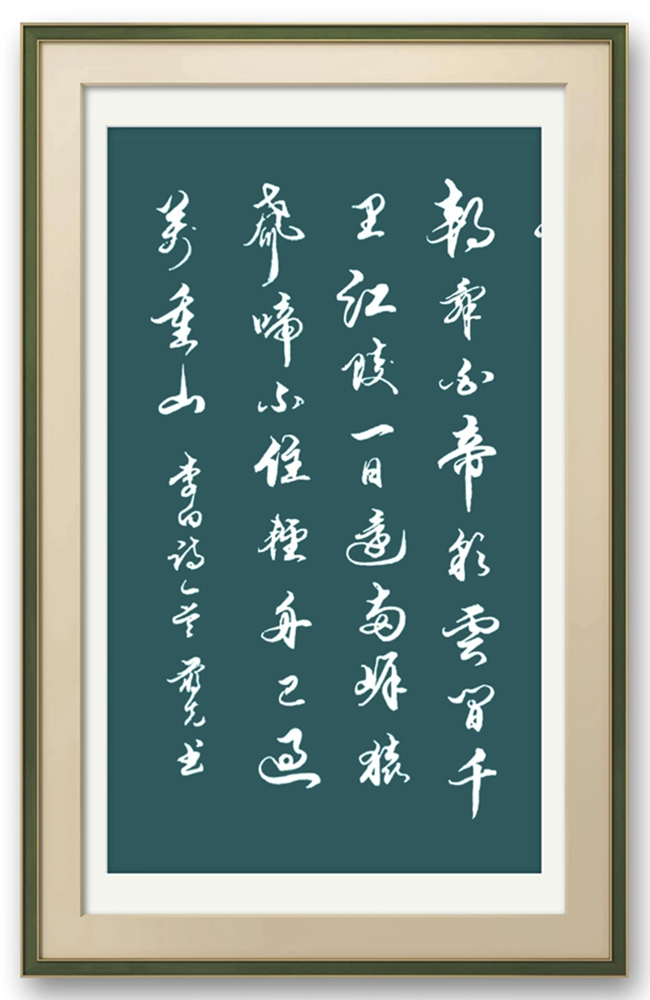 朝辭白帝彩雲間千
里江陵一日還兩岸猿
聲啼不住輕舟已過
萬重山 李白詩一首 书